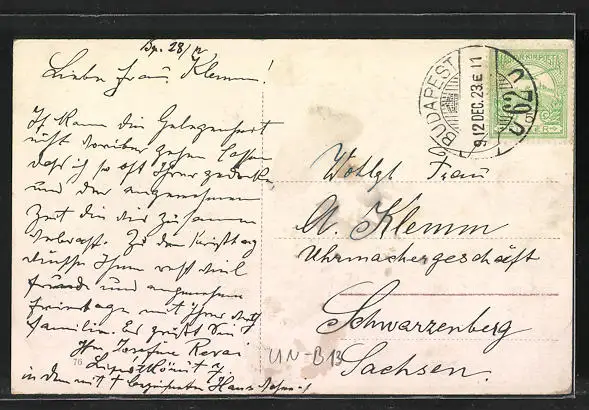 Bp. 23/12
Liebe Frau Klemm!
Ich kann die Gelegenheit
nicht vorüber gehen lassen
dass ich so oft Ihrer gedenke
und der angenehmen
Zeit die wir zusammen
verbracht. Zu dem
Ihnen recht viel
Freude und angenehme
Feiertage mit Ihrer
Familie. Es grüßt Sie
Ihre Josefine Revai
76
in dem mit bezeichneten Haus
BUDAPEST
912 DEC. 23. E 11
Wohlgb Frau
A. Klemm
Uhrmachergeschäft
Schwarzenberg
Sachsen.
UN-B13